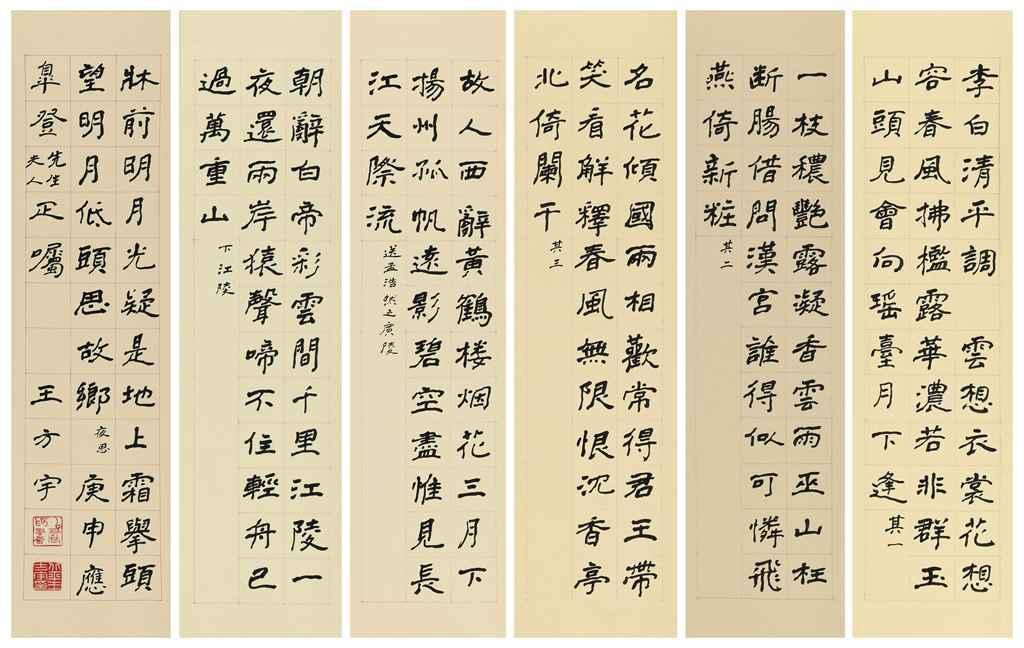 李白清平調 雲想衣裳花想
容春風拂檻露華濃若非群玉
山頭見會向瑤臺月下逢 其一
一枝穠艷露凝香雲雨巫山枉
断腸借問漢宮誰得似可憐飛
燕倚新粧 其二
名花傾國兩相歡常得君王帶
笑看解釋春風無限恨沉香亭
北倚闌干 其三
故人西辭黃鶴楼烟花三月下
揚州孤帆遠影碧空盡惟見長
江天際流 送孟浩然之廣陵
朝辭白帝彩雲間千里江陵一
夜還兩岸猿聲啼不住輕舟已
過萬重山 下江陵
牀前明月光疑是地上霜舉頭
望明月低頭思故鄉 夜思 庚申應
皐登先生夫人正囑 王方宇